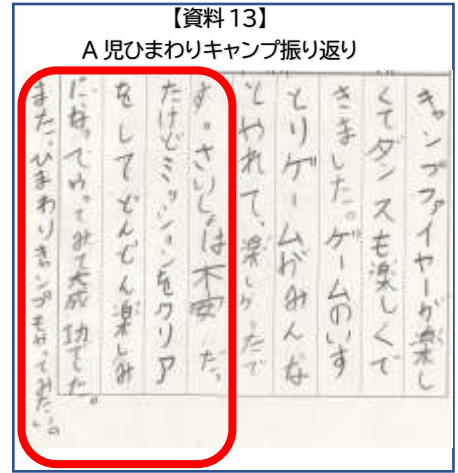 【資料13】
A児ひまわりキャンプ振り返り
キャンプファイヤーが楽し
くてダンスも楽しくで
きました。ゲームのいす
とりゲームがみんな
とやれて、楽しかったで
す。さいしょは不安だっ
たけどミッションをクリア
をしてどんどん楽しみ
になってやってみて大成功でした。
また、ひまわりキャンプをやってみたい